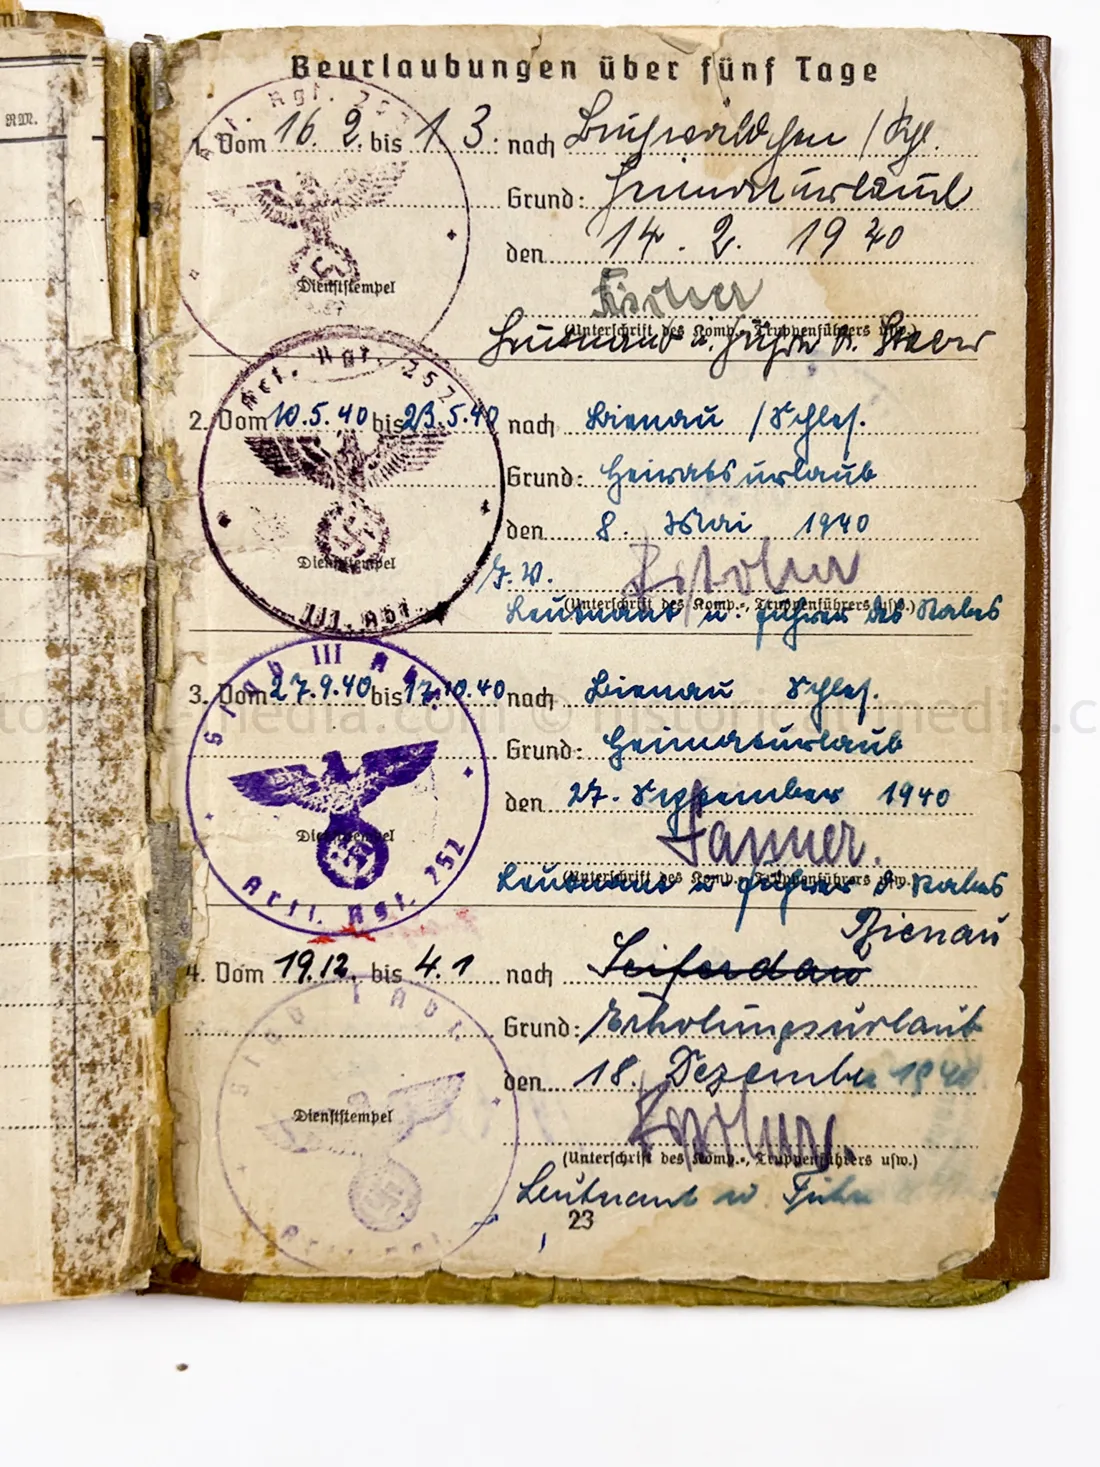 RM.
Beurlaubungen über fünf Tage
Art. Rgt. 252
1. Vom 16.2. bis 1.3. nach Buchwäldchen /
Grund: Heimaturlaub
den 14.2. 1940
Dienststempel
Fischer
(Unterschrift des Komp.-, Truppenführers usw.)
Leutnant u. Führer d. Stabes
Art. Rgt. 252
2. Vom 10.5.40 bis 23.5.40 nach Bienau /Schles.
Grund: Heiratsurlaub
den 8. Mai 1940
Dienststempel
J.V.
(Unterschrift des Komp.-, Truppenführers usw.)
Leutnant u. Führer des Stabes
III. Abt.
Stab III Abt.
3. Vom 27.9.40 bis 17.10.40 nach Bienau Schles.
Grund: Heimaturlaub
den 27. September 1940
Dienststempel
(Unterschrift des Komp.-, Truppenführers usw.)
Leutnant u Führer d. Stabes
Artl. Rgt. 252
Bienau
4. Vom 19.12. bis 4.1 nach Seiferdau
Stab Abt.
Grund: Erholungsurlaub
den 18. Dezember 1940
Dienststempel
(Unterschrift des Komp.-, Truppenführers usw.)
Leutnant u Führer
Artl. Rgt.
23
historical-media.com © historical-media.c